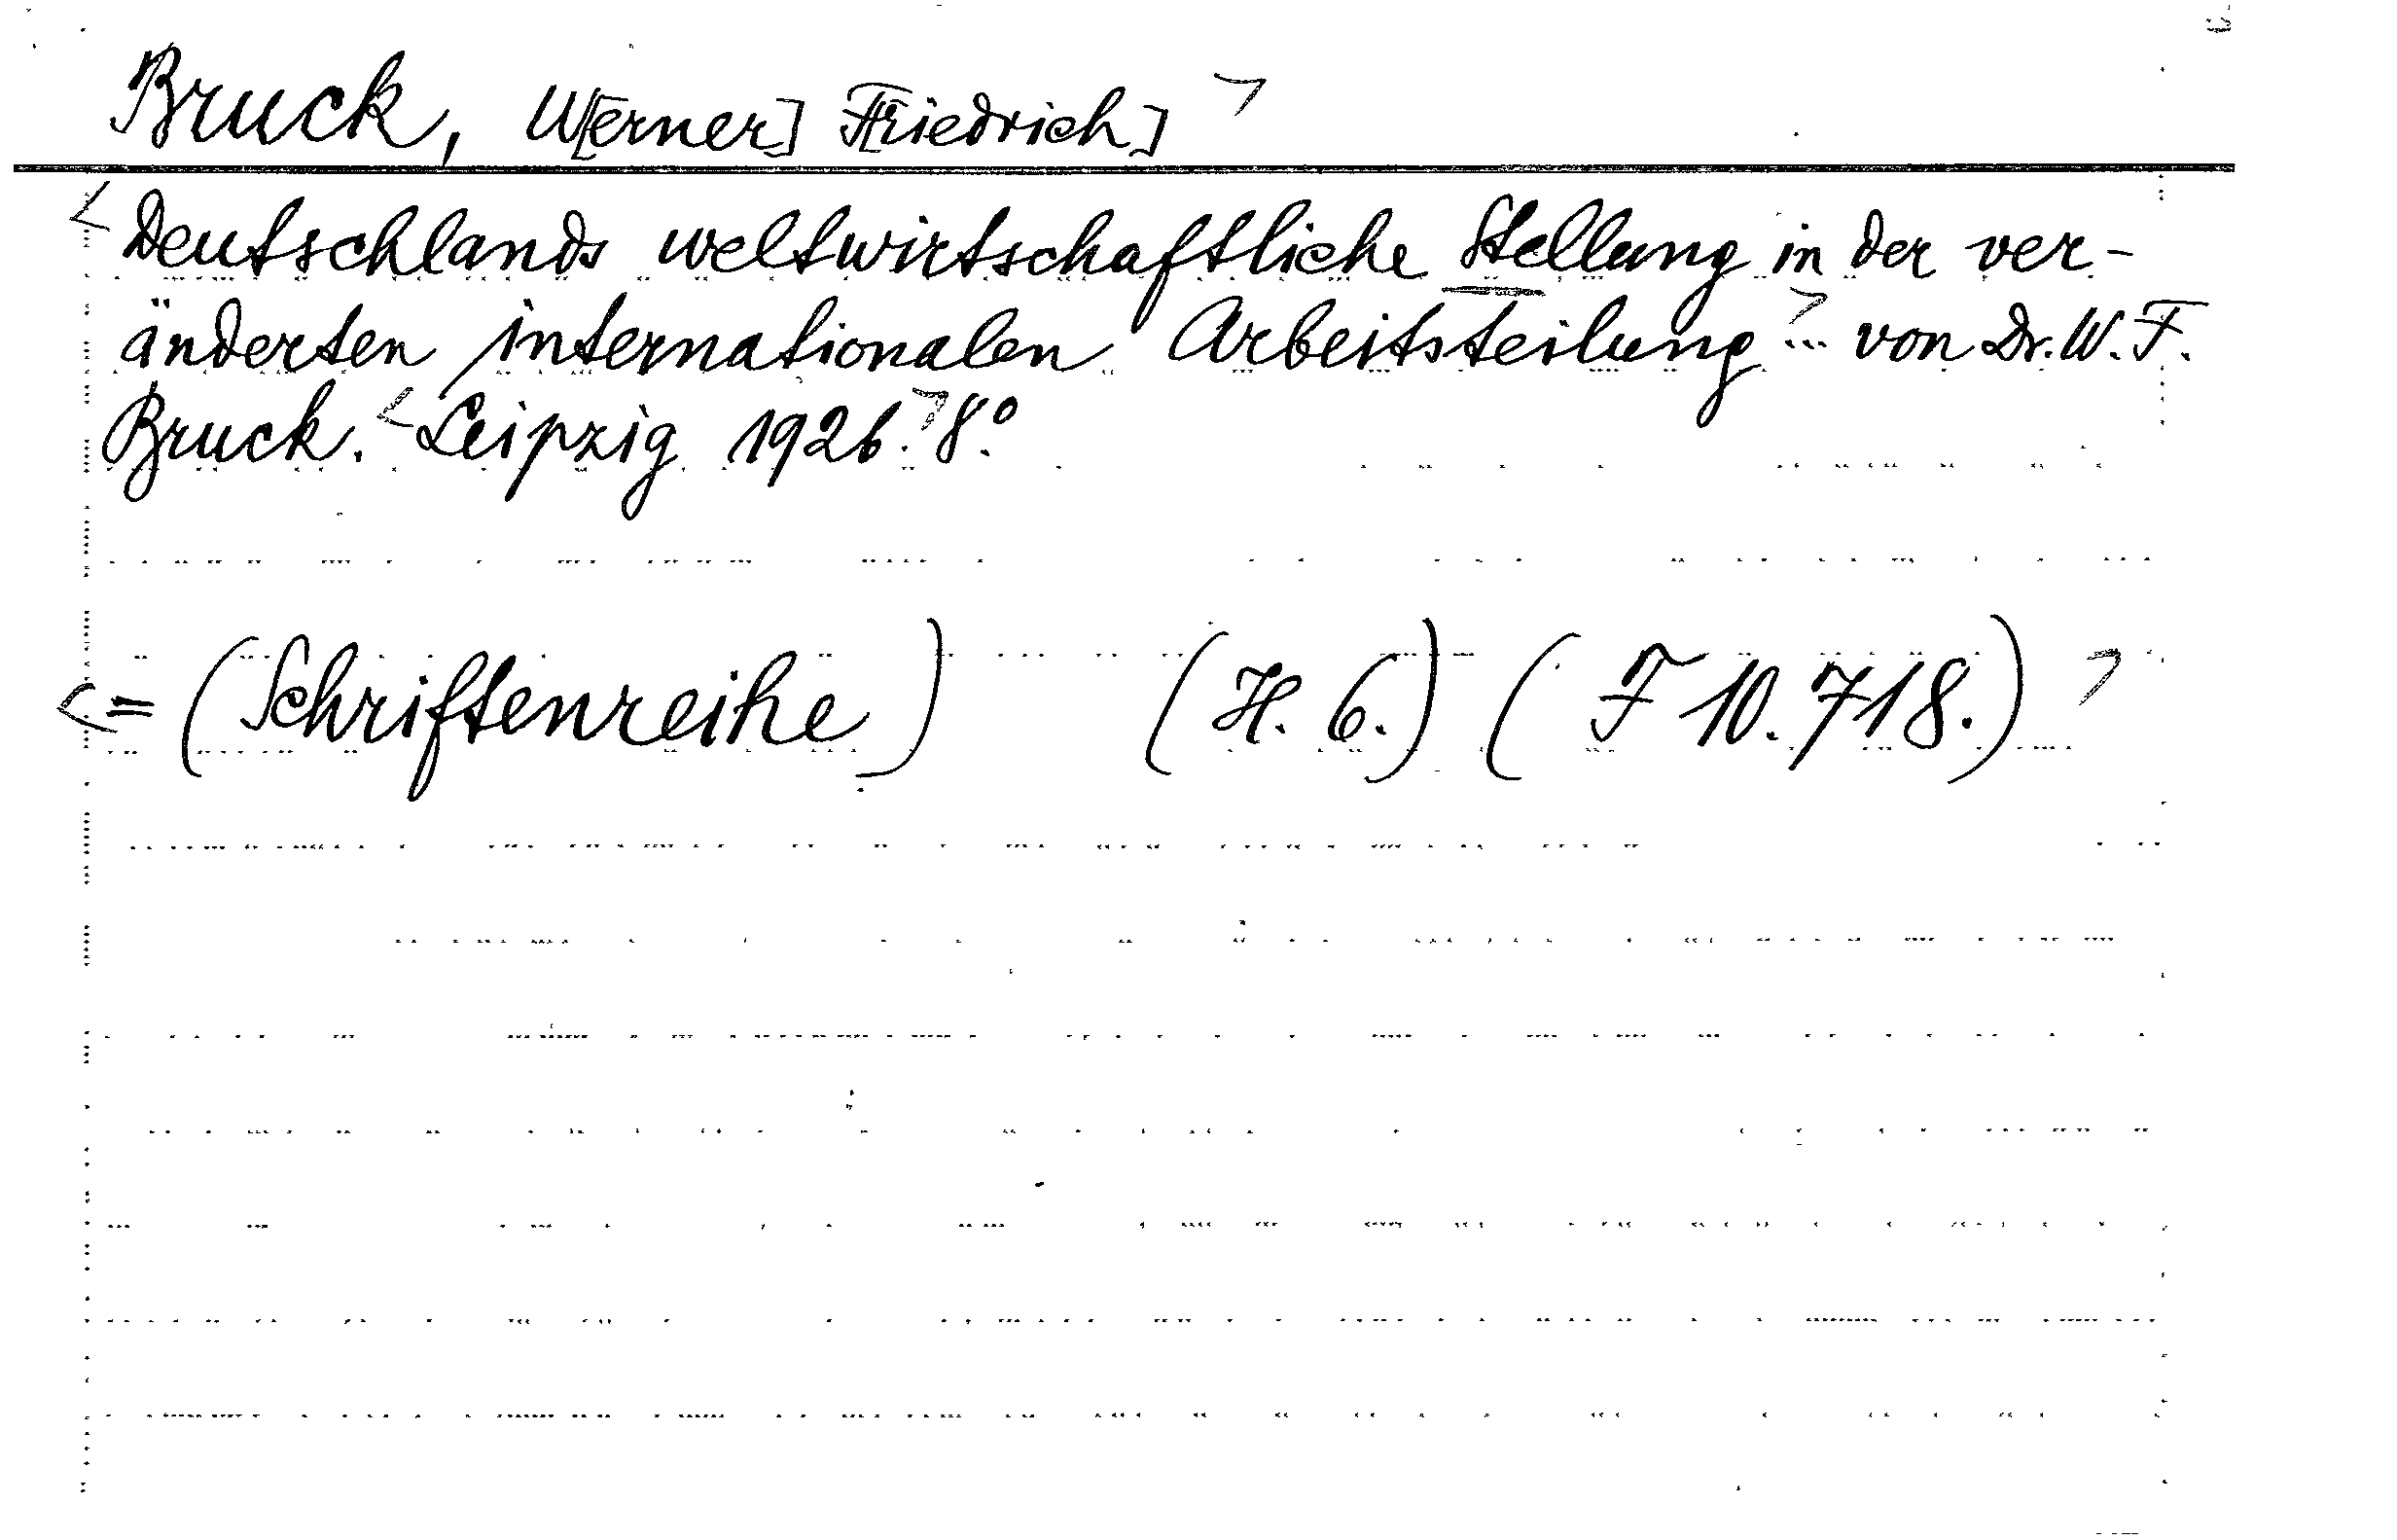 Bruck, W[erner] F[riedrich] >
< Deutschlands weltwirtschaftliche Stellung in der ver-
änderten internationalen Arbeitsteilung > ... von Dr. W. F.
Bruck. < Leipzig 1926. > 8.º
< = (Schriftenreihe) (H. 6.) ( F 10.718.) >